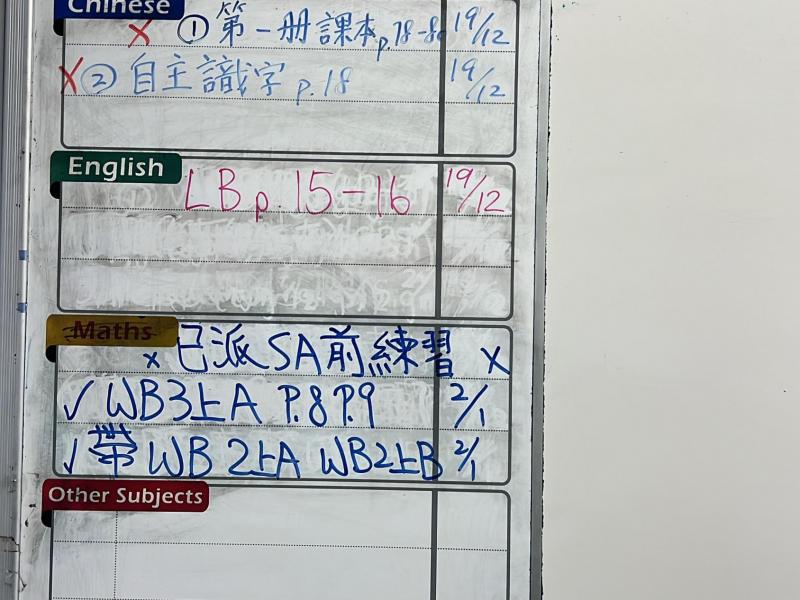 Chinese
x ① 第一册課本 p.78-80 19/12
x ② 自主識字 p.18 19/12
English
LB p.15-16 19/12
Maths
x 已派SA前練習 x
✓ WB3上A P.8 P.9 2/1
✓ 帶 WB 2上A WB2上B 2/1
Other Subjects